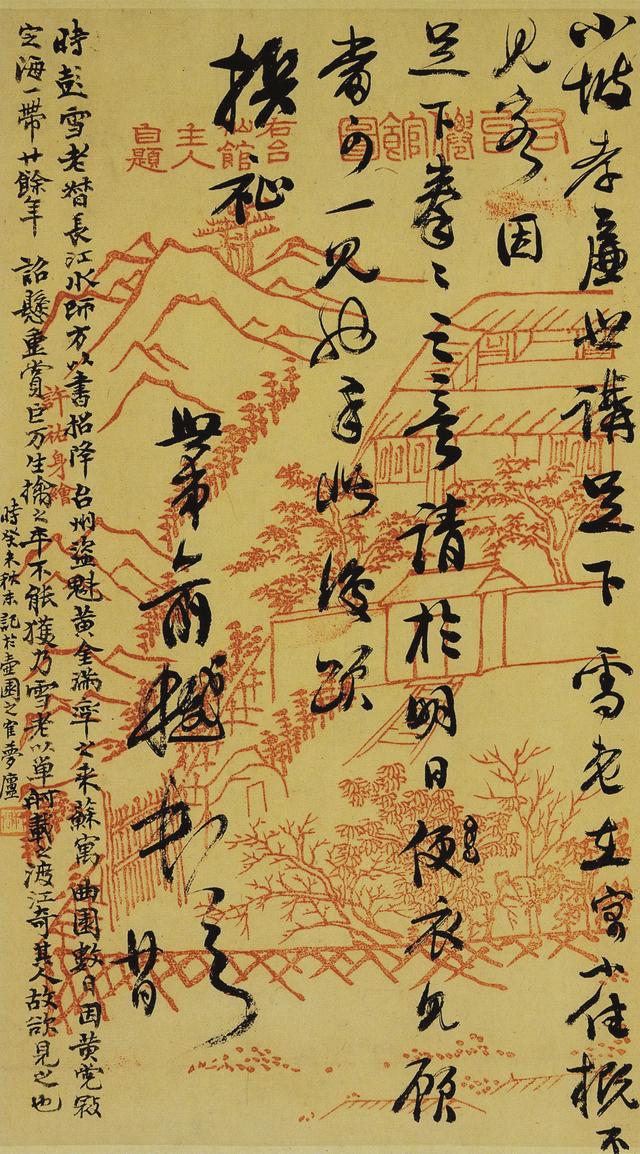 小坡孝廉世講足下雪老在寓小住概不
見客因
足下拳〻之意請於明日便衣見顧
當可一見也手此復頌
撰祉
世弟俞樾
廿日
時彭雪老督長江水師方以書招降台州盜魁黃金滿率之來蘇寓曲園數日因黃党
定海一帶廿餘年詔懸重賞巨万生擒之卒不能獲乃雪老以單舸載之渡江奇其人故欲見之也
時癸未秋末記於壺園之夢廬
右台僊館圖
右台仙館主人自題
許祐身繪